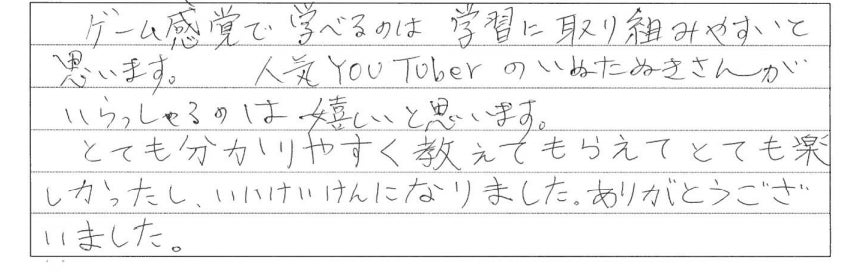 ゲーム感覚で学べるのは学習に取り組みやすいと
思います。 人気YOUTuberのいぬたぬきさんが
いらっしゃるのは嬉しいと思います。
とても分かりやすく教えてもらえてとても楽
しかったし、いいけいけんになりました。ありがとうござ
いました。